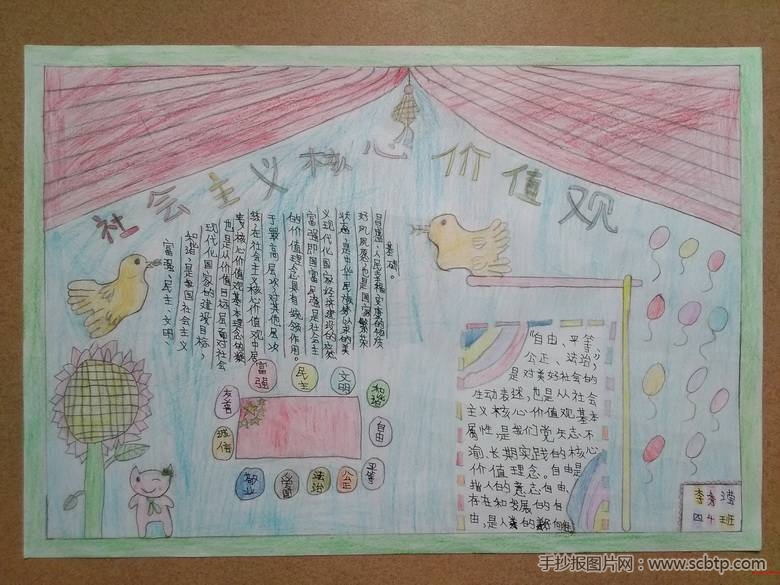 社会主义核心价值观
富强、民主、文明
和谐,是我国社会主义
现代化国家的建设目标,
也是从价值目标层面对社会
主义核心价值观基本理念的凝
练,在社会主义核心价值观中居
于最高层次,对其他层次
的价值理念具有统领作用。
富强即国富民强,是社会主
义现代化国家经济建设的应然
状态,是中华民族梦寐以求的美
好夙愿,也是国家繁荣
昌盛、人民幸福安康的物质
基础。
富强
民主
文明
和谐
自由
平等
公正
法治
爱国
敬业
诚信
友善
“自由、平等、
公正、法治”,
是对美好社会的
生动表述,也是从社会
主义核心价值观基本
属性,是我们党矢志不
渝、长期实践的核心
价值理念。自由是
指人的意志自由、
存在和发展的自
由,是人类的
李
四4班
手抄报图片网:www.scbtp.com